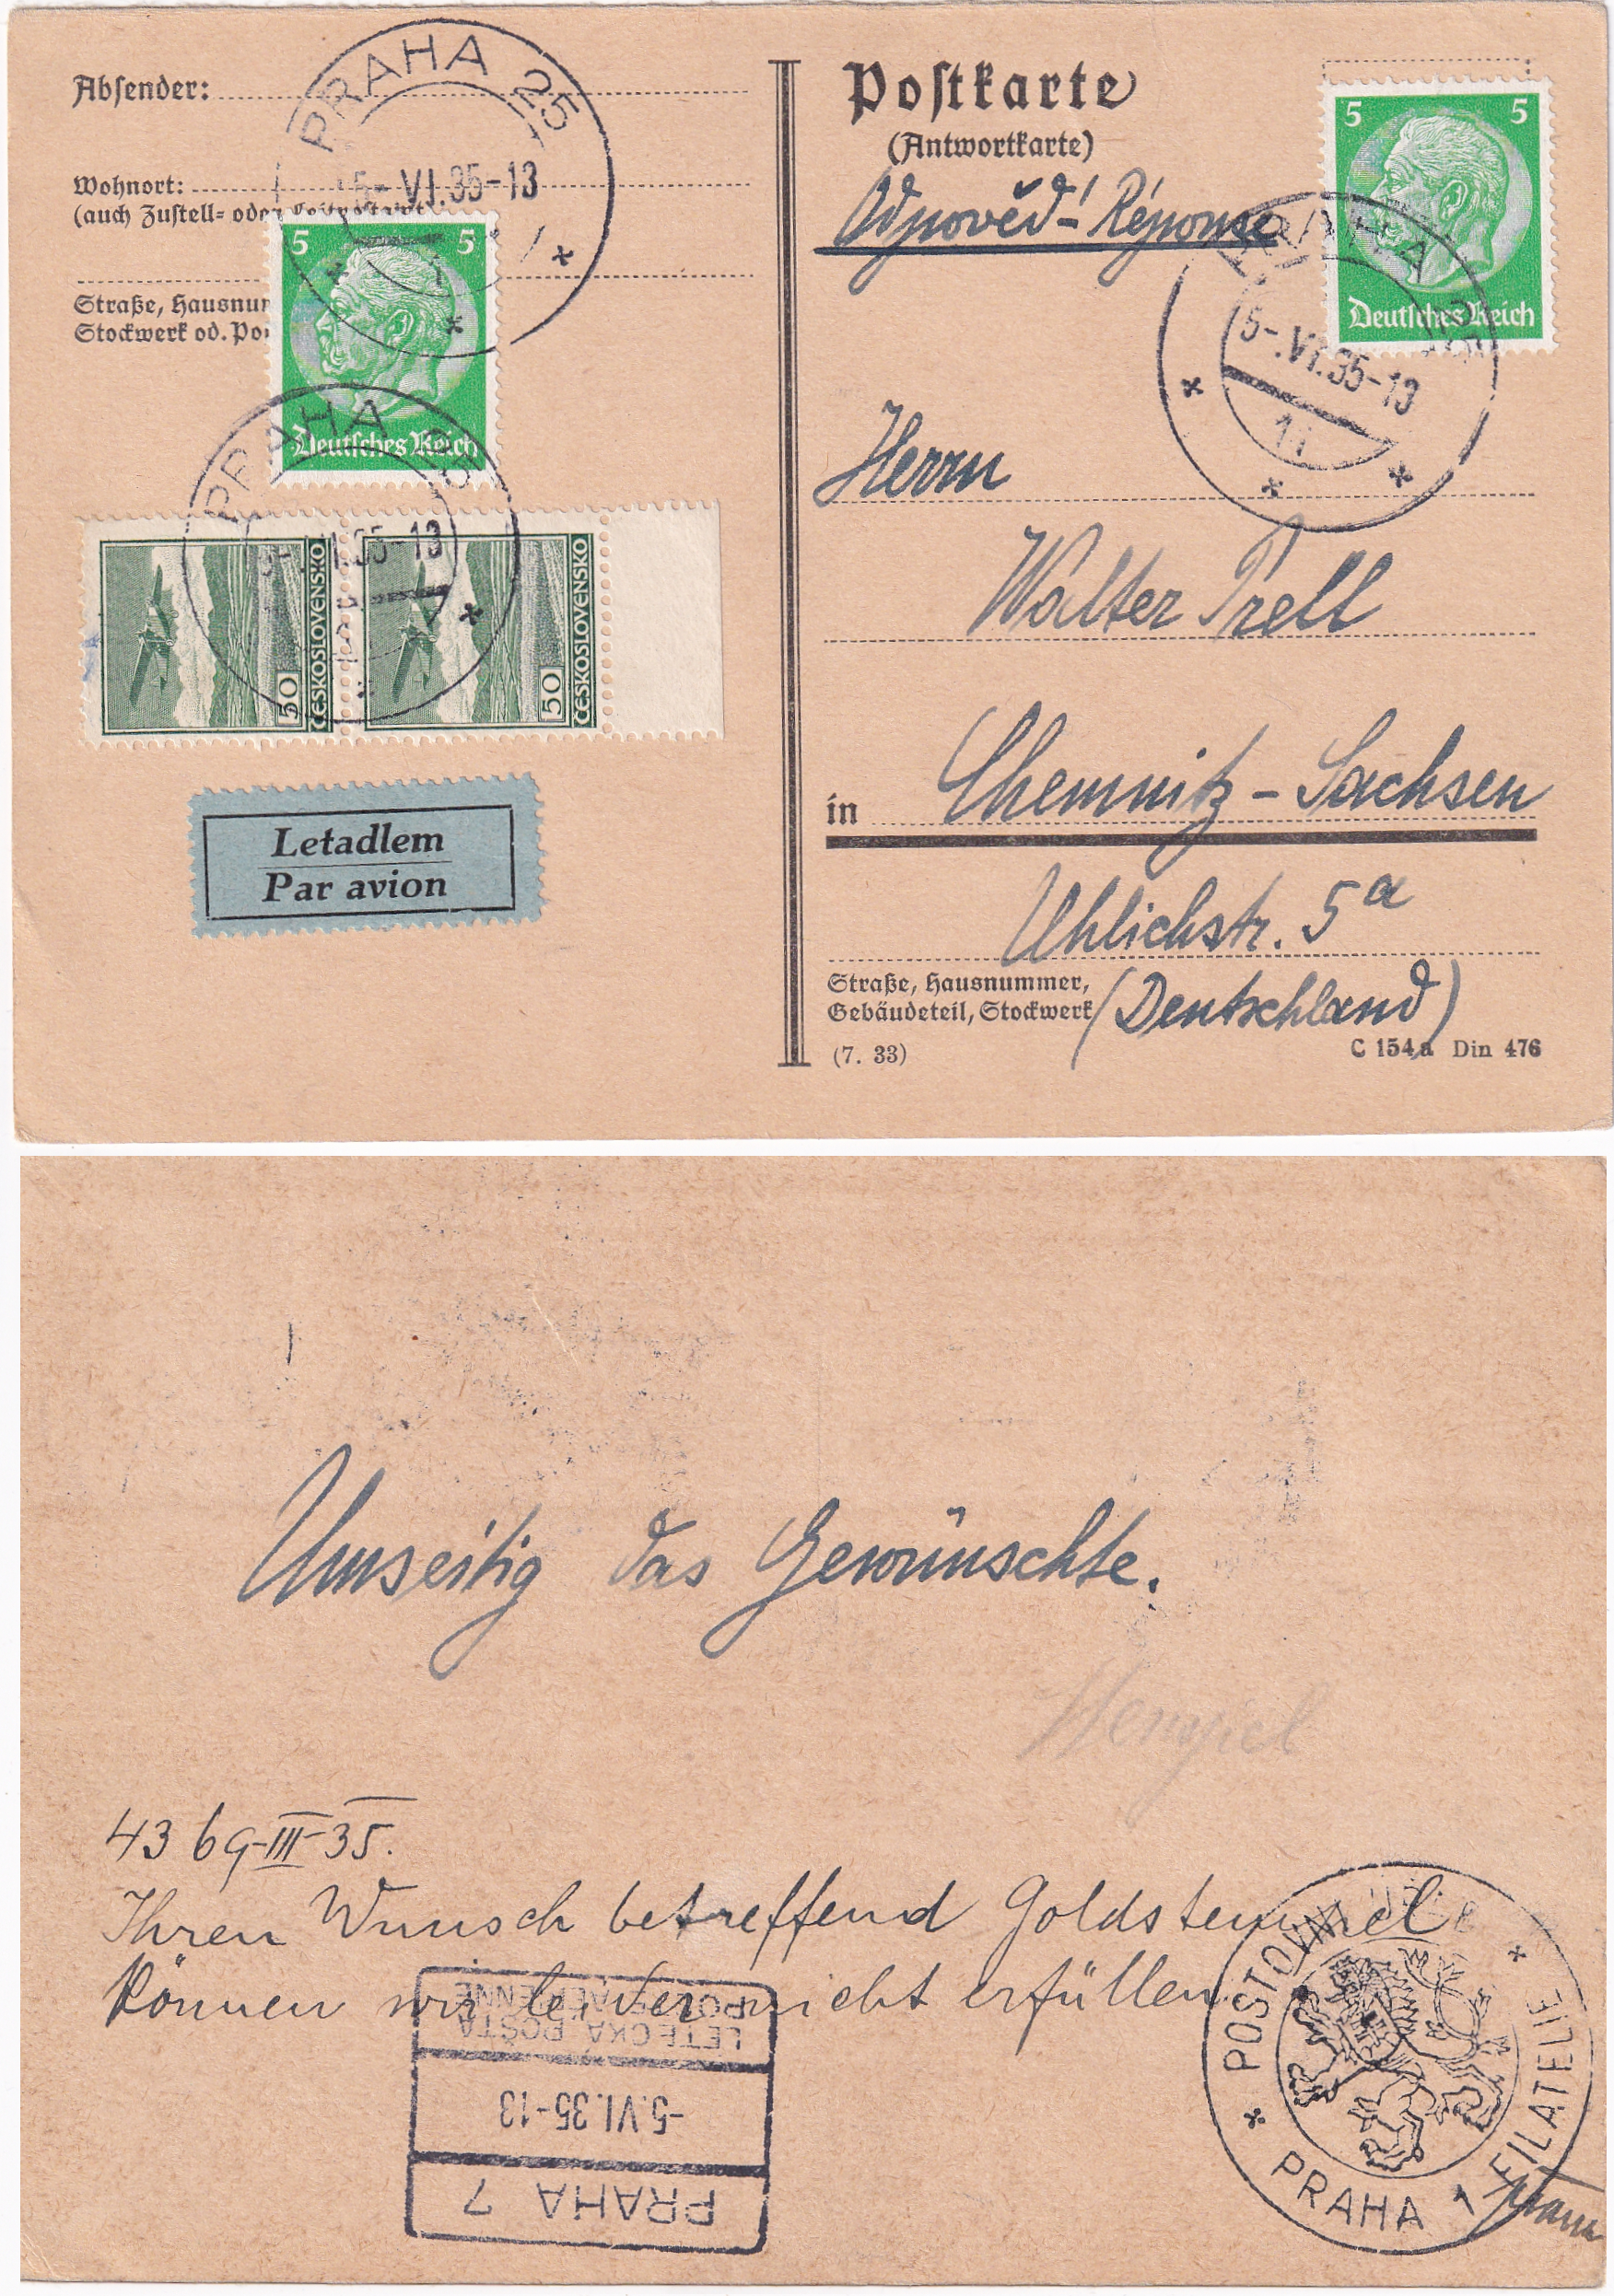 Absender:
Wohnort:
(auch Zustell- oder
Straße, Hausnum
Stockwerk od. Po
PRAHA 25
5-.VI.35-13
5 5
Deutsches Reich
PRAHA 25
5-.VI.35-13
50
ČESKOSLOVENSKO
50
ČESKOSLOVENSKO
Letadlem
Par avion
Postkarte
(Antwortkarte)
Odpověď-Réponse
5 5
Deutsches Reich
PRAHA 25
5-.VI.35-13
Herrn
Walter Prell
in Chemnitz-Sachsen
Uhlichstr. 5a
Straße, Hausnummer,
Gebäudeteil, Stockwerk
(Deutschland)
(7. 33)
C 154a Din 476
Umseitig das Gewünschte.
Hempel
43 69-III-35.
Ihren Wunsch betreffend Goldstempel
können wir leider nicht erfüllen.
PRAHA 7
-5.VI.35-13
LETECKÁ POŠTA
POSTE AÉRIENNE
POSTOVNI
FILATELIE
PRAHA 1